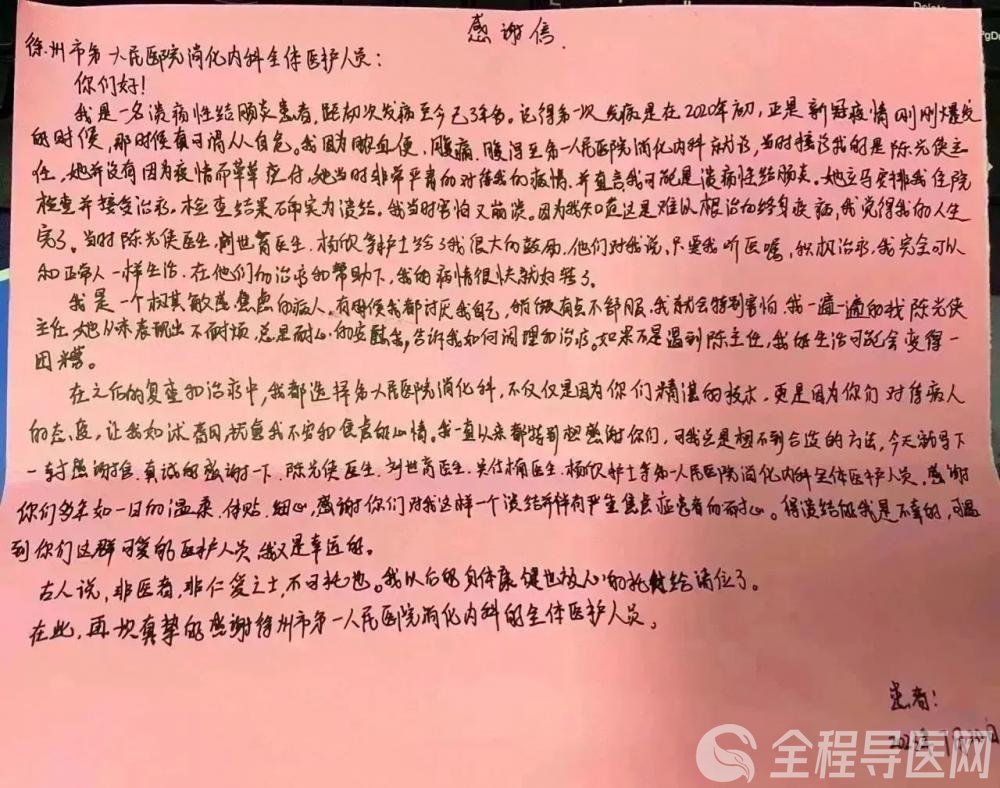 感谢信.
徐州市第一人民医院消化内科全体医护人员:
你们好!
我是一名溃疡性结肠炎患者,距初次发病至今已3年多。记得第一次发病是在2020年初,正是新冠疫情刚刚爆发
的时候,那时候真可谓人人自危。我因为脓血便、腹痛、腹泻至第一人民医院消化内科就诊,当时接诊我的是陈光侠主
任,她并没有因为疫情而草草应付,她当时非常严肃的对待我的病情,并直言我可能是溃疡性结肠炎。她立马安排我住院
检查并接受治疗。检查结果确实为溃结。我当时害怕又崩溃。因为我知道这是难以根治的终身疾病,我觉得我的人生
完了。当时陈光侠医生、刘世育医生、杨欣等护士给了我很大的鼓励,他们对我说,只要我听医嘱,积极治疗,我完全可以
和正常人一样生活。在他们的治疗和帮助下,我的病情很快就好转了。
我是一个极其敏感焦虑的病人,有时候我都讨厌我自己,稍微有点不舒服,我就会特别害怕,我一遍一遍的找陈光侠
主任,她从未表现出不耐烦,总是耐心的安慰我,告诉我如何调理和治疗。如果不是遇到陈主任,我的生活可能会变得一
团糟。
在之后的复查和治疗中,我都选择第一人民医院消化科,不仅仅是因为你们精湛的技术,更是因为你们对待病人
的态度,让我如沐春风,抚直我不安和焦虑的心情。我一直以来都特别想感谢你们,可我总是想不到合适的方法,今天就写下
一封感谢信,真诚的感谢一下,陈光侠医生、刘世育医生、吴仕楠医生、杨欣护士等第一人民医院消化内科全体医护人员,感谢
你们多年如一日的温柔、体贴、细心,感谢你们对我这样一个溃结并伴有严重焦虑症患者的耐心。得溃结的我是不幸的,可遇
到你们这群可爱的医护人员,我又是幸运的。
古人说,非医者,非仁爱之士,不可托也。我以后的身体康健也放心的托付给诸位了。
在此,再次真挚的感谢徐州市第一人民医院消化内科的全体医护人员。
患者:
全程导医网
Delete